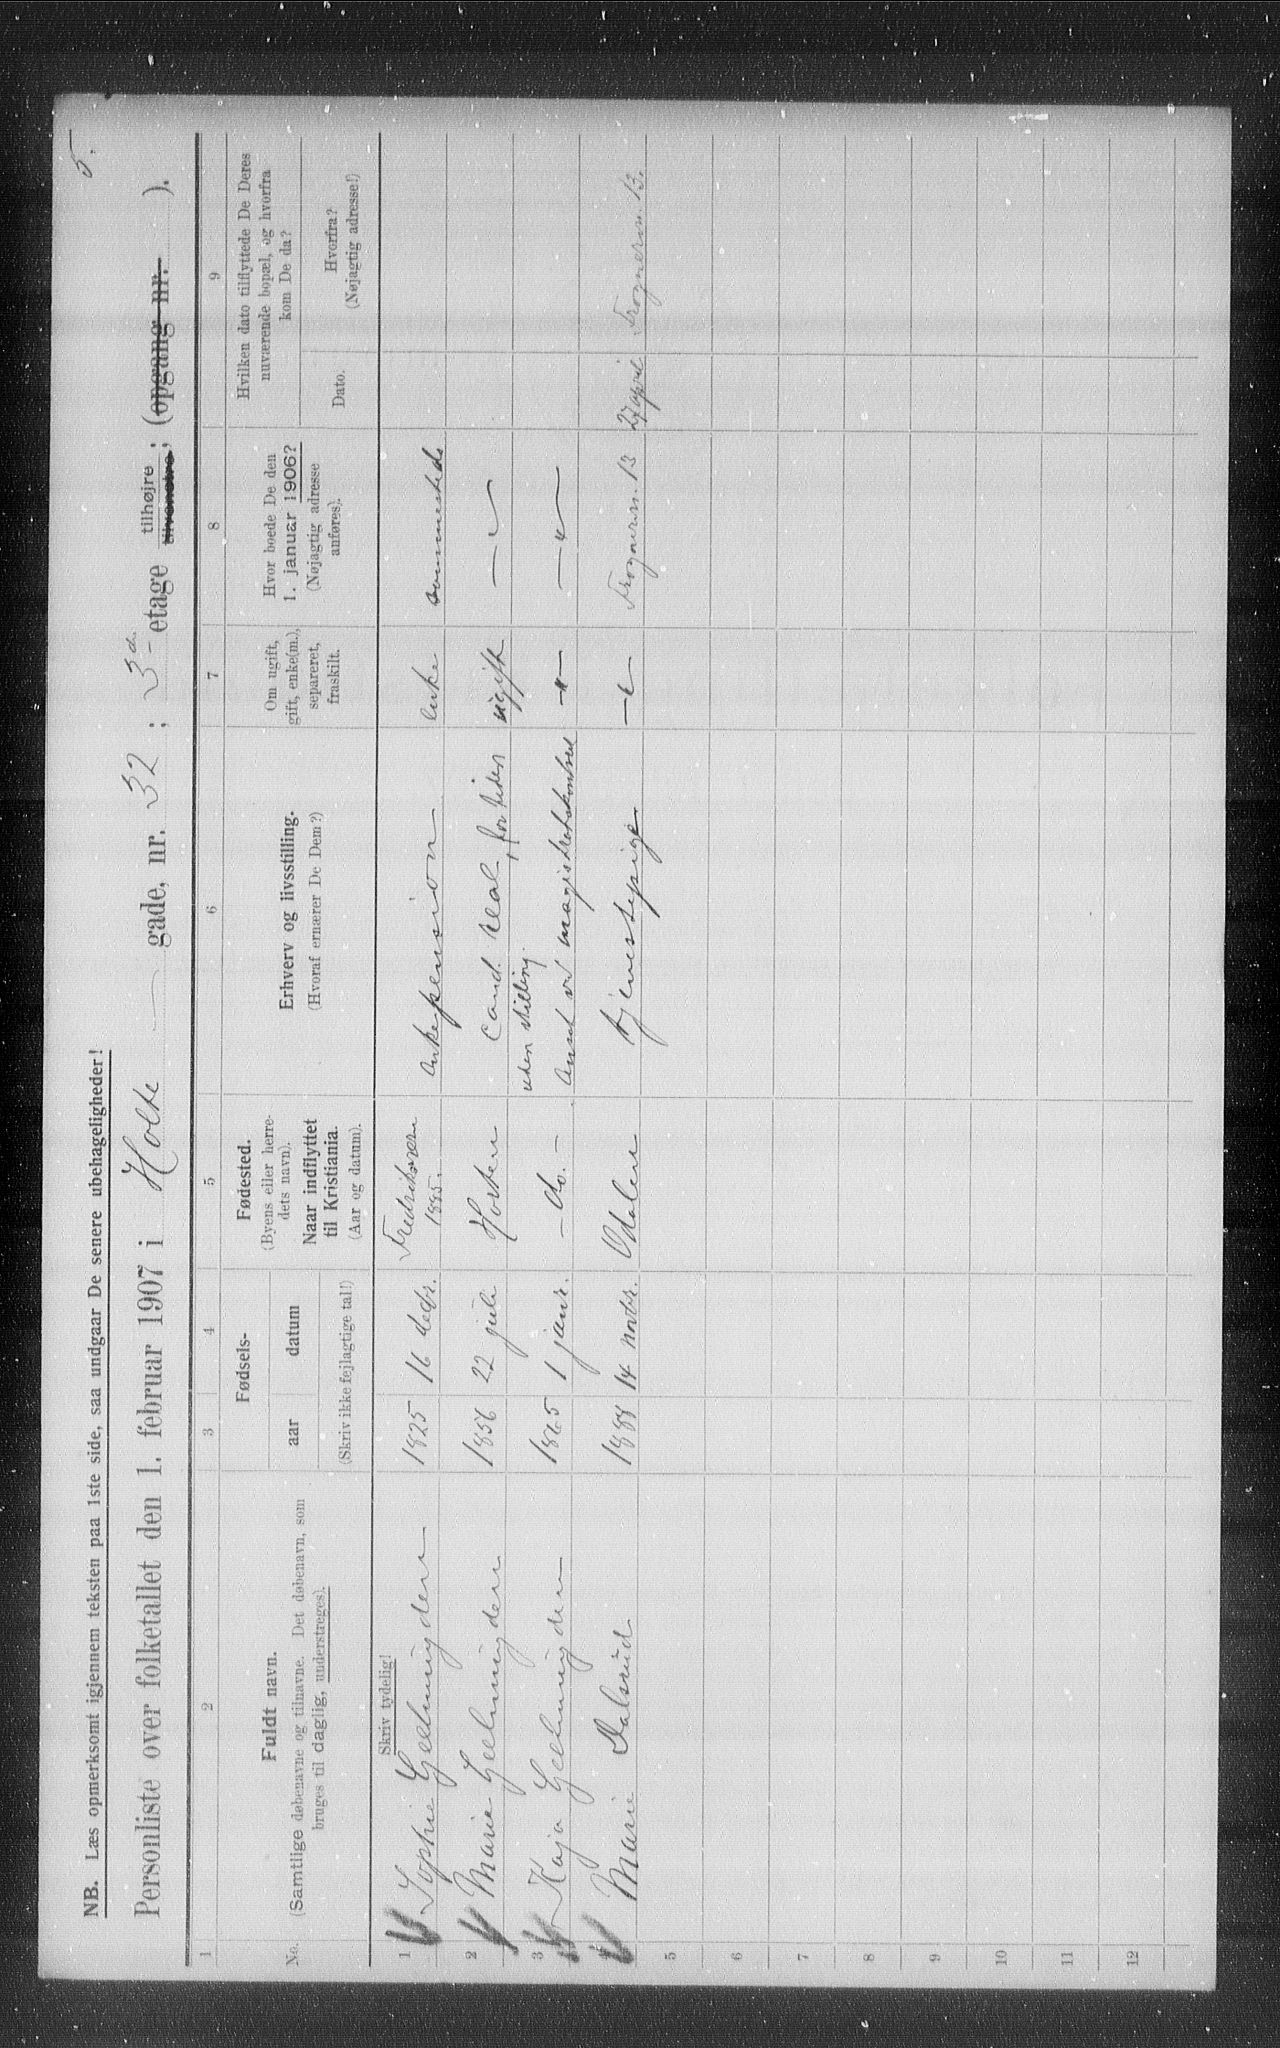 5.
NB. Læs opmerksomt igjennem teksten paa 1ste side, saa undgaar De senere ubehageligheder!
Personliste over folketallet den 1. februar 1907 i Holte gade, nr. 32 ; 3d. - etage tilhøjre ; (opgang nr. ).
tilvenstre
1 2 3 4 5 6 7 8 9
No.
Fuldt navn.
(Samtlige døbenavne og tilnavne. Det døbenavn, som
bruges til daglig, understreges).
Fødsels-
aar datum
(Skriv ikke fejlagtige tal!)
Fødested.
(Byens eller herre-
dets navn).
Naar indflyttet
til Kristiania.
(Aar og datum).
Erhverv og livsstilling.
(Hvoraf ernærer De Dem?)
Om ugift,
gift, enke(m.),
separeret,
fraskilt.
Hvor boede De den
1. januar 1906?
(Nøjagtig adresse
anføres).
Hvilken dato tilflyttede De Deres
nuværende bopæl, og hvorfra
kom De da?
Dato.
Hvorfra?
(Nøjagtig adresse!)
Skriv tydelig!
1 Sophie Geelmuyden 1825 16 decbr. Fredriksværn 1885. Enkepension enke sammesteds
2 Marie Geelmuyden 1856 22 juli Horten Cand. real, for tiden ugift — " —
uden stilling.
3 Kaja Geelmuyden 1865 1 janr. — do. — Ansat ved magistratskontoret — " — — " —
4 Marie Dalsrud 1888 14 novbr. Odalen tjenestepige — " — Frognerv. 13 27 april Frognerv. 13.
5
6
7
8
9
10
11
12